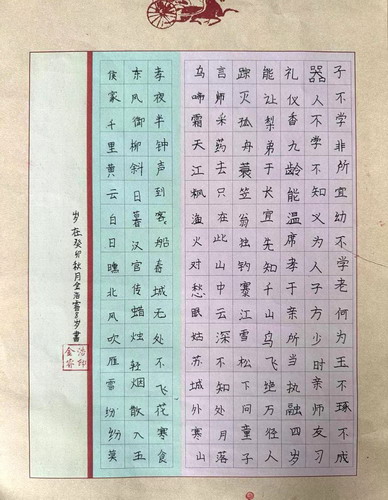 子不学非所宜幼不学老何为玉不琢不成
器人不学不知义为人子方少时亲师友习
礼仪香九龄能温席孝于亲所当执融四岁
能让梨弟于长宜先知千山鸟飞绝万径人
踪灭孤舟蓑笠翁独钓寒江雪松下问童子
言师采药去只在此山中云深不知处月落
乌啼霜天江枫渔火对愁眠姑苏城外寒山
寺夜半钟声到客船春城无处不飞花寒食
东风御柳斜日暮汉宫传蜡烛轻烟散入五
侯家千里黄云白日曛北风吹雁雪纷纷莫
岁在癸卯秋月金浩睿8岁書
金睿浩印